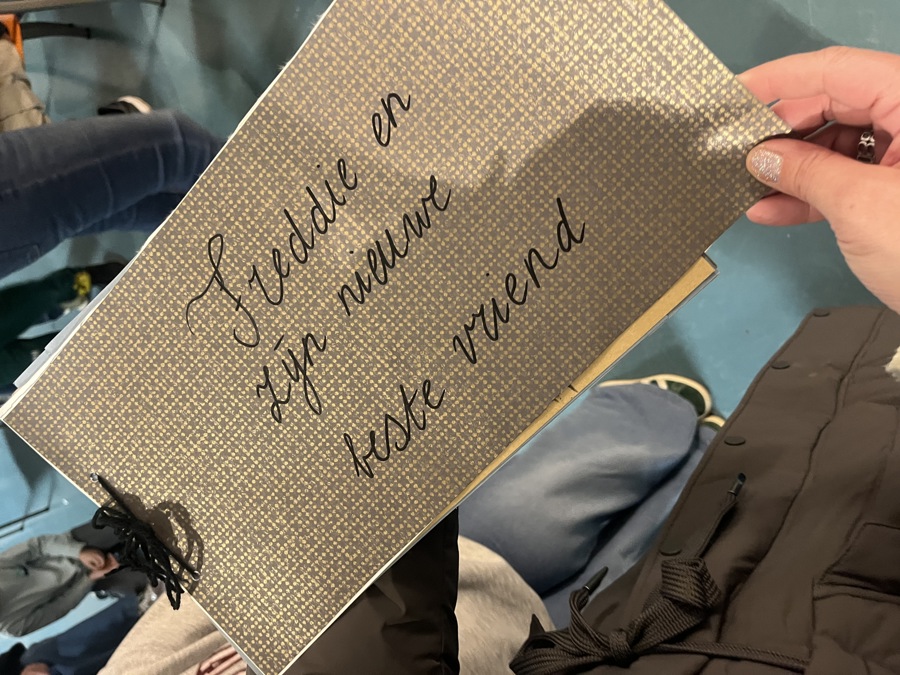 Freddie en
zijn nieuwe
beste vriend